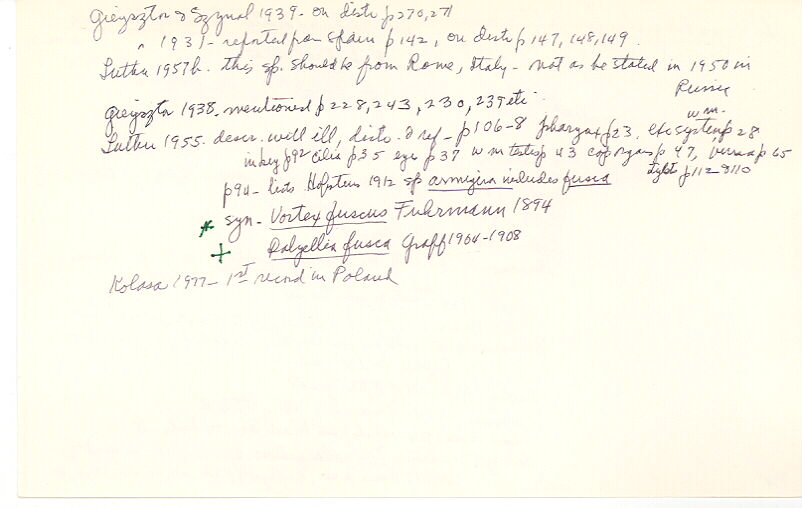 Gieysztor & Szynal 1939 - on distr p270,271
" 1931 - reported from Spain p142, on distr p147, 148, 149.
Luther 1957b. this sp. should be from Rome, Italy - not as he stated in 1950 in
Russia
Gieysztor 1938. mentioned p228, 243, 230, 239 etc.
w m.
Luther 1955. descr. will ill, distr. & ref - p106-8 pharynx p23, exc system p28
in key p92 cilia p35 eye p37 w m testes p43 cop organs p47, bursa p65
p94 - lists Hofsten 1912 sp armigera includes fusca p112 & 110
* syn - Vortex fuscus Fuhrmann 1894
+ Dalyellia fusca Graff 1904-1908
Kolasa 1977 - 1st record in Poland